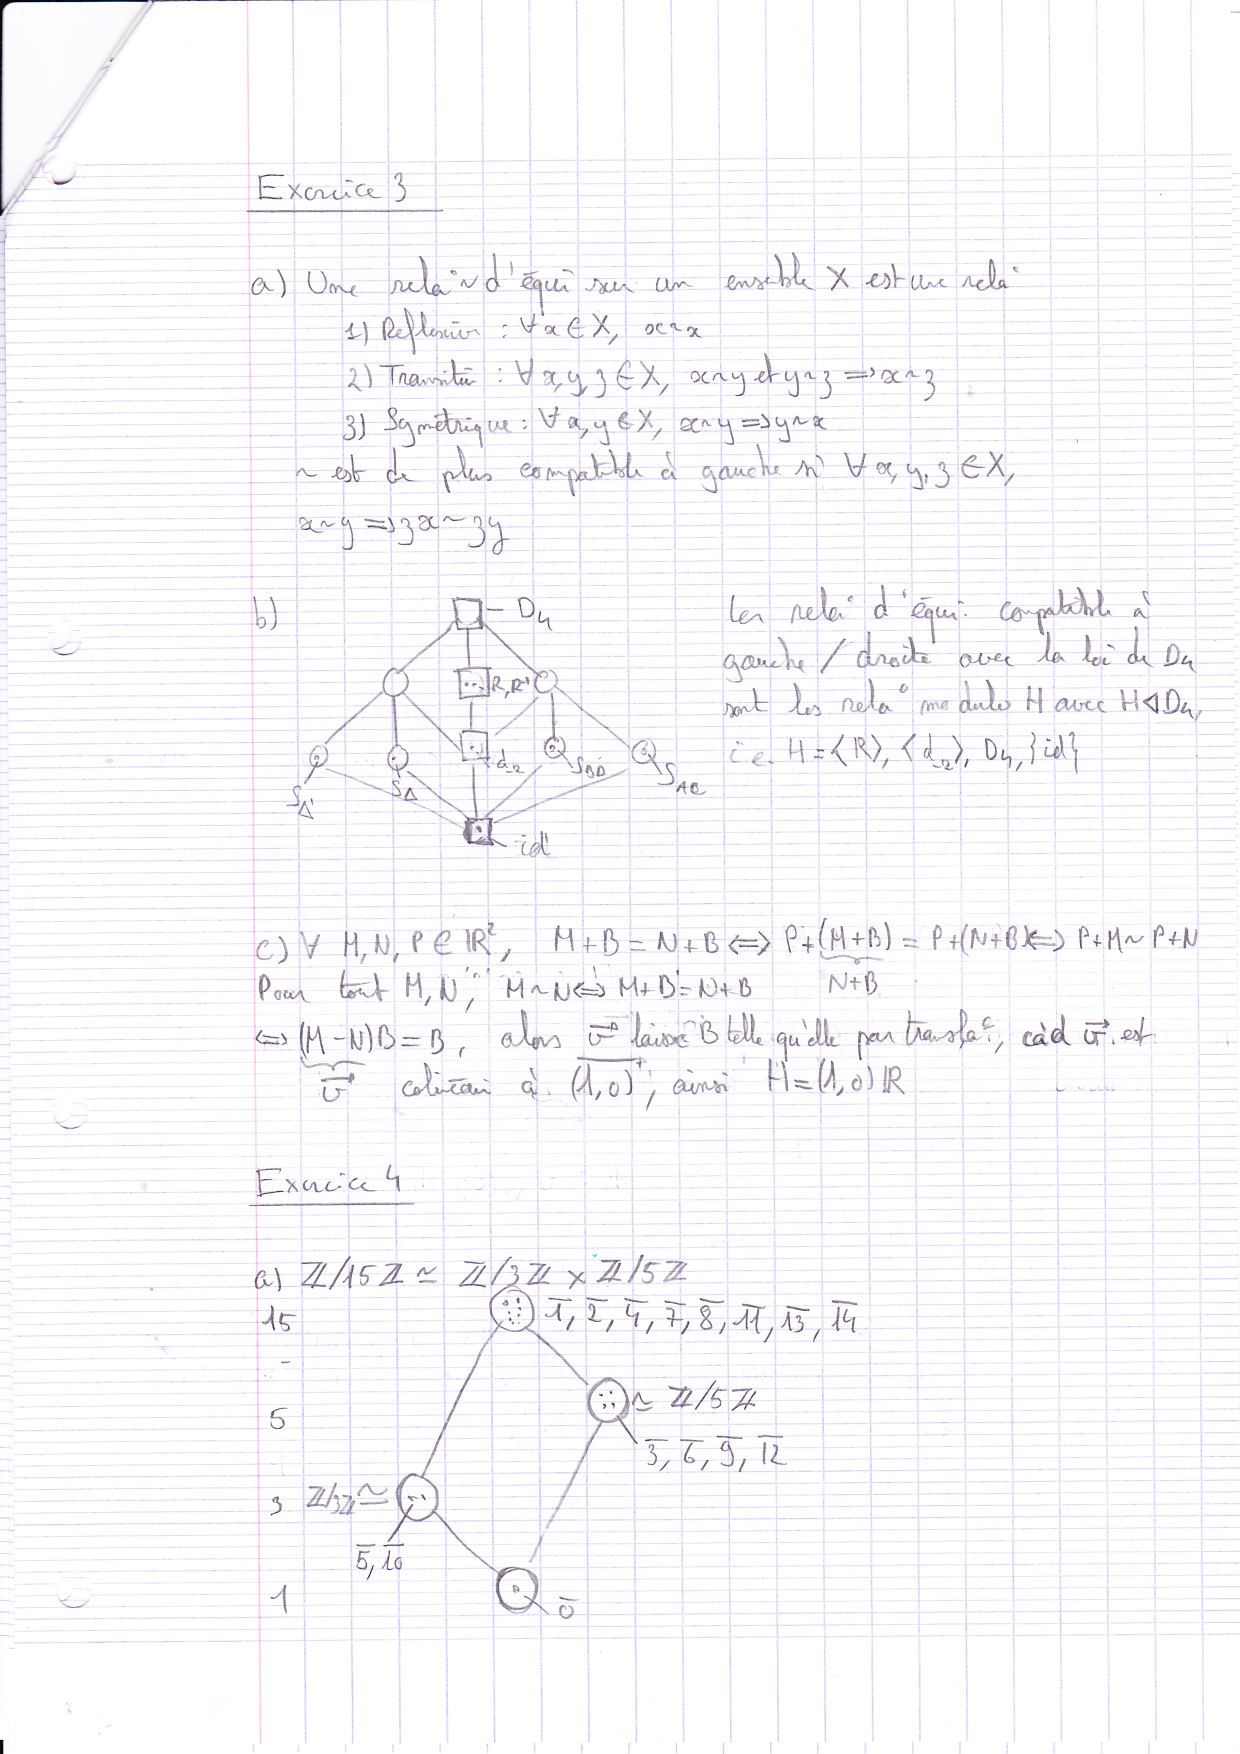 Exercice 3
a) Une rela° ~ d'équi sur un ensble X est une rela°
1) Réflexive : ∀x ∈ X, x~x
2) Transitive : ∀x,y,z ∈ X, x~y et y~z ⟹ x~z
3) Symétrique : ∀x,y ∈ X, x~y ⟹ y~x
~ est de plus compatible à gauche si ∀x,y,z ∈ X,
x~y ⟹ zx ~ zy
b)
D₄
R, R⁻¹
S_Δ'
S_Δ
S_BD
S_AC
id
Les rela° d'équi. compatible à
gauche / droite avec la loi de D₄
sont les rela° modulo H avec H ◁ D₄,
i.e. H = ⟨R⟩, ⟨d_Ω⟩, D₄, {id}
c) ∀ M, N, P ∈ ℝ², M+B = N+B ⟺ P+(M+B) = P+(N+B) ⟺ P+M ~ P+N
N+B
Pour tout M, N, M~N ⟺ M+B = N+B
⟺ (M-N)B = B, alors v⃗ laisse B telle qu'elle par transla°, càd v⃗ est
v⃗ colinéaire à (1,0), ainsi H = (1,0)ℝ
Exercice 4
a) ℤ/15ℤ ≃ ℤ/3ℤ × ℤ/5ℤ
15 1̄, 2̄, 4̄, 7̄, 8̄, 1̄1̄, 1̄3̄, 1̄4̄
-
≃ ℤ/5ℤ
5
3̄, 6̄, 9̄, 1̄2̄
3 ℤ/3ℤ ≃
5̄, 1̄0̄
1 0̄